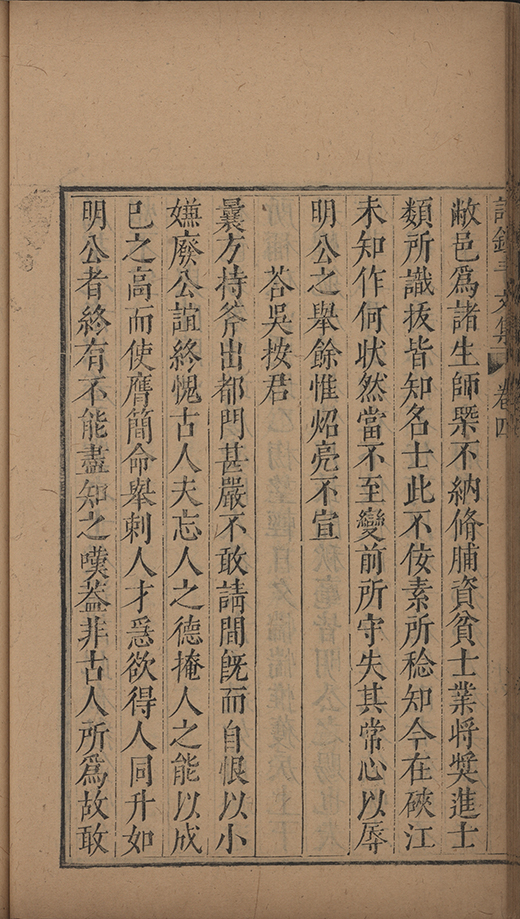 敝邑爲諸生師槩不納脩脯資貧士業將奬進士
類所識拔皆知名士此不佞素所稔知今在硤江
未知作何狀然當不至變前所守失其常心以辱
明公之舉餘惟炤亮不宣
荅吳按君
曩方持斧出都門甚嚴不敢請間旣而自恨以小
嫌廢公誼終愧古人夫忘人之德掩人之能以成
已之高而使膺簡命舉刺人才惡欲得人同升如
明公者終有不能盡知之嘆葢非古人所爲故敢